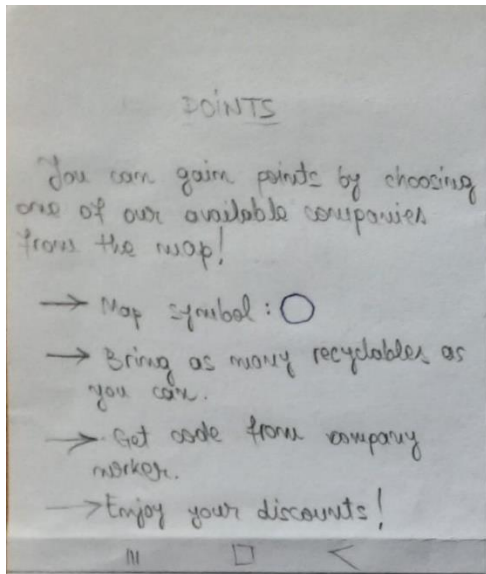 POINTS
You can gain points by choosing
one of our available companies
from the map!
→ Map symbol: ◯
→ Bring as many recyclables as
you can.
→ Get code from company
worker.
→ Enjoy your discounts!